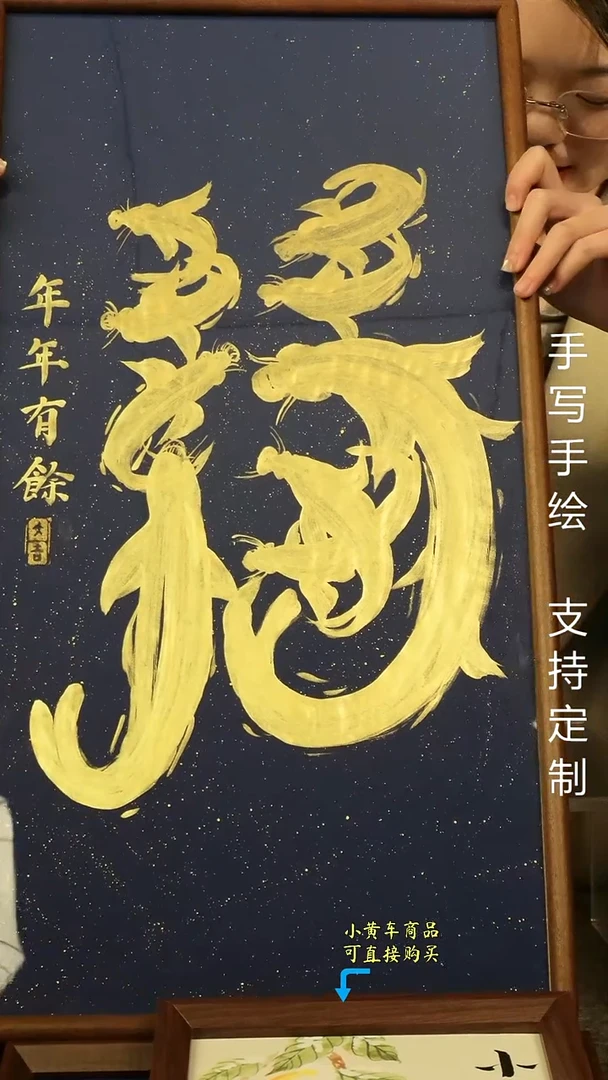 福
年年有餘
手写手绘 支持定制
小黄车商品
可直接购买
小